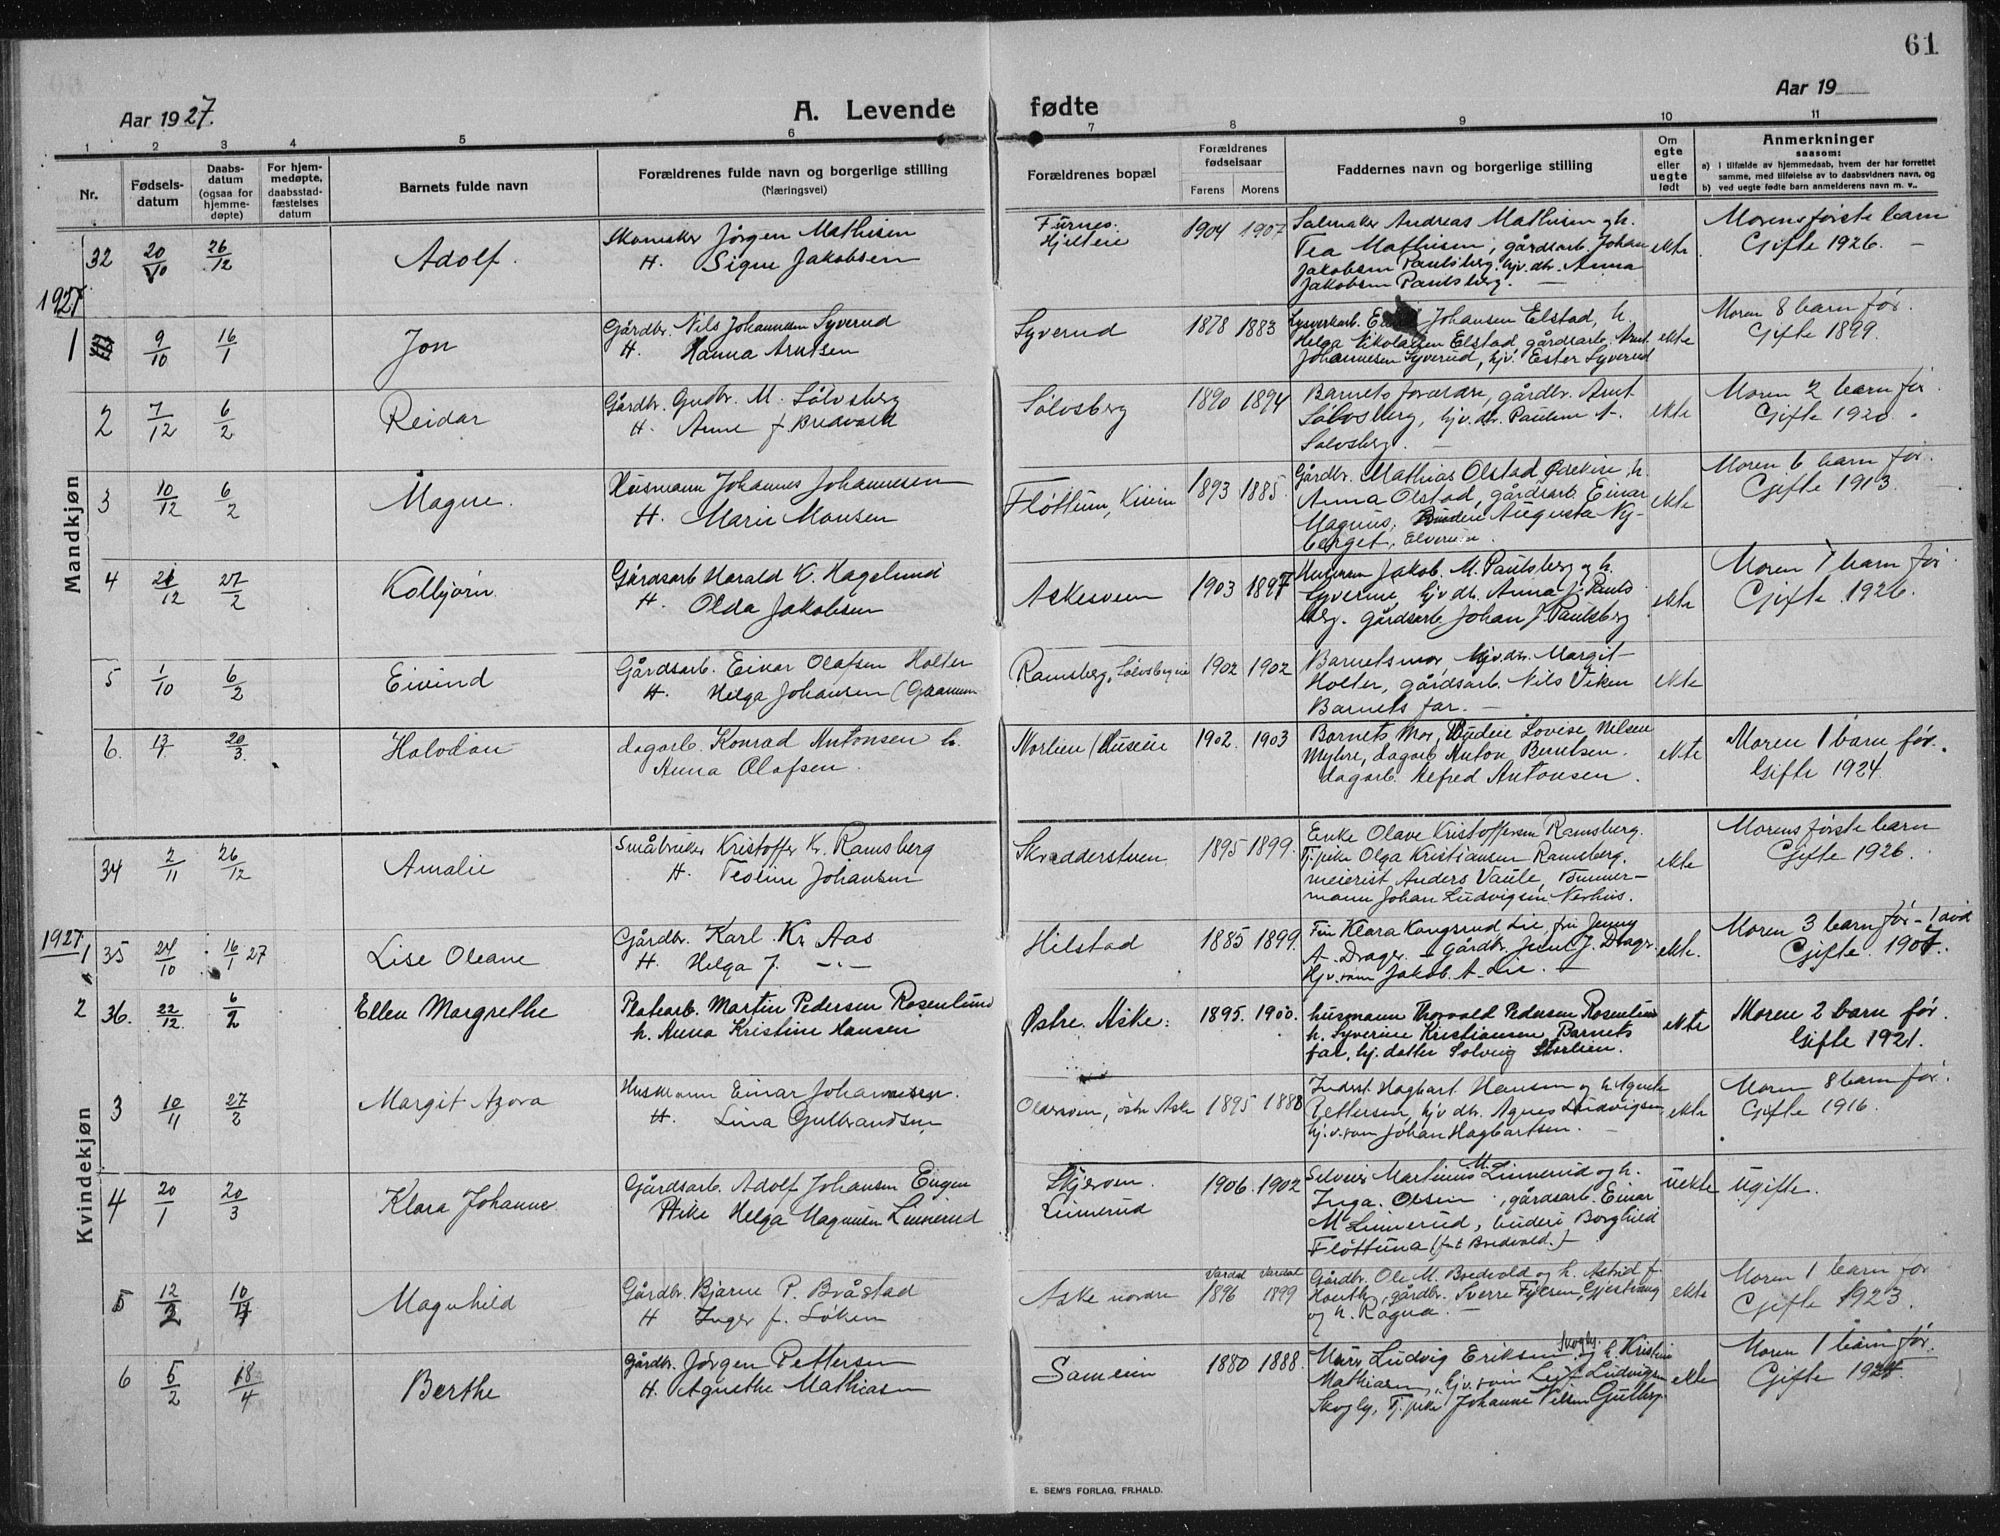 61
Aar 1927.
A. Levende fødte
Aar 19
1 2 3 4 5 6 7 8 9 10 11
Nr.
Fødsels-
datum
Daabs-
datum
(ogsaa for
hjemme-
døpte)
For hjem-
medøpte,
daabsstad-
fæstelses
datum
Barnets fulde navn
Forældrenes fulde navn og borgerlige stilling
(Næringsvei)
Forældrenes bopæl
Forældrenes
fødselsaar
Farens Morens
Faddernes navn og borgerlige stilling
Om
egte
eller
uegte
født
Anmerkninger
saasom:
a) I tilfælde av hjemmedaab, hvem der har forrettet
samme, med tilføielse av to daabsvidners navn, og
b) ved uegte fødte barn anmelderens navn m. v..
Mandkjøn
32 20/10 26/12 Adolf.
Skomaker Jörgen Mathisen
H. Signe Jakobsen
Furnes.
1904 1907
Salmaker Andreas Mathisen og h.
Tea Mathisen, gårdsarb. Johan
Jakobsen Paulsberg. hjv. dtr. Anna
Jakobsen Paulsberg. —
ekte
Morens første barn
Gifte 1926. —
1927
1 9/10 16/1 Jon
Gårdbr. Nils Johannesen Syverud
H. Hanna Arntsen
Syverud
1878 1883
Johansen Elstad, h.
Helga Nikolaisen Elstad, gårdsarb. Arnt
Johannesen Syverud, hjv. Ester Syverud
ekte
Moren 8 barn før.
Gifte 1899.
2 7/12 6/2 Reidar
Gårdbr. Gudbr. M. Sølvsberg
H. Anne f. Bredvold
Sølvsberg
1890 1894
Barnets forældre, gårdbr. Arnt
Sølvsberg, hjv. dtr. Pauline A.
Sølvsberg. —
ekte
Moren 2 barn før.
Gifte 1920.
3 10/12 6/2 Magne.
Husmann Johannes Johannesen
H. Marie Monsen
Fløttum,
1893 1885.
Gårdbr. Mathias Olstad h.
Anna Olstad, gårdsarb. Einar
Magnus, Budeie Augusta Ny-
berget,
ekte
Moren 6 barn før.
Gifte 1913.
4 /12 27/2 Kolbjørn
Gårdsarb. Harald K. Hagelund
H. Olda Jakobsen
Askesveen
1903 1897
Jakob. M. Paulsberg og h.
Syverine, hjv dtr. Anna J. Pauls
berg. Gårdsarb. Johan J. Paulsberg
ekte
Moren 1 barn før.
Gifte 1926.
5 1/10 6/2 Eivind
Gårdsarb. Einar Olafsen Holter
H. Helga Johansen
Ramsberg,
1902 1902
Barnets mor hjv. dtr. Margit
Holter, gårdsarb. Nils Viken
Barnets far. —
ekte
6. 13/1 20/3 Halvdan
dagarb. Konrad Antonsen h.
Anna Olafsen.
1902. 1903
Barnets Mor, Budeie Lovise Nilsen
Myhre, dagarb Anton Berntsen.
dagarb. Alfred Antonsen.
ekte
Moren 1 barn før.
Gifte 1924.
Kvindekjøn
34 2/11 26/12 Amalie
Småbruker Kristoffer Kr. Ramsberg
H. Johansen
Skreddersveen
1895 1899.
Enke Olave Kristoffersen Ramsberg.
Tj. pike Olga Kristiansen Ramsberg.
meierist Anders Vaule, Tømmer-
mann Johan Ludvigsen Nerhus.
ekte
Morens første barn
Gifte 1926.
1927
1 35 24/10 16/1 27 Lise Oleane
Gårdbr. Karl Kr. Aas
H. Helga J. —"—
Hilstad
1885 1899.
Fru Klara Kongsrud Lie, fru Jenny
A. Drager. Gårdbr. J. Drager
Hjv. søn Jakob A. Lie. —
ekte.
Moren 3 barn før - 1 død
Gifte 1907.
2 36. 22/12 6/2 Ellen Margrethe
Platearb. Martin Pedersen Rosenlund
h. Anna Kristine Hansen
Østre. Aske.
1895. 1900.
husmann Thorvald Pedersen Rosenlund
h. Syverine Kristiansen Barnets
far, hj. datter Solveig Storlien.
ekte
Moren 2 barn før.
Gifte 1921.
3 10/11 27/2 Margit Azora
Husmann Einar Johannesen.
H. Lina Gulbrandsen
østr Aske
1895 1888
Inderst Hagbart Hansen og h. Agnete
Pettersen, hjv dtr. Agnes Ludvigsen
hj. v. søn Johan Hagbartsen. —
ekte
Moren 8 barn før.
Gifte 1916.
4 20/1 20/3 Klara Johanne
Gårdsarb. Adolf Johansen Engen
Pike Helga Magnusen Linnerud
Linnerud
1906. 1902
Selveier Martinus M. Linnerud og h.
Inga Olsen, gårdsarb. Einar
M Linnerud, budeie Borghild
Fløttum (født Bredvold.)
uekte
ugifte.
5 12/2 10/4 Magnhild
Gårdbr. Bjarne P. Bråstad
H Inger f. Løken
Aske nordre
Vardal Vardal
1896 1899
Gårdbr. Ole M. Bredvold og h. Astrid f.
gårdbr. Sverre
og h. Ragna. —
ekte
Moren 1 barn før
Gifte 1923.
6 5/2 18/4 Berthe
Gårdbr. Jørgen Pettersen
H. Agnethe Mathiasen
1880 1888.
Murer Ludvig Eriksen Skogly. og h. Kristine
Mathiasen, hjv. søn Leif Ludvigsen
Skogly, Tj. pike Johanne Nilsen
ekte
Moren 1 barn før
E. SEM'S FORLAG, FR.HALD.